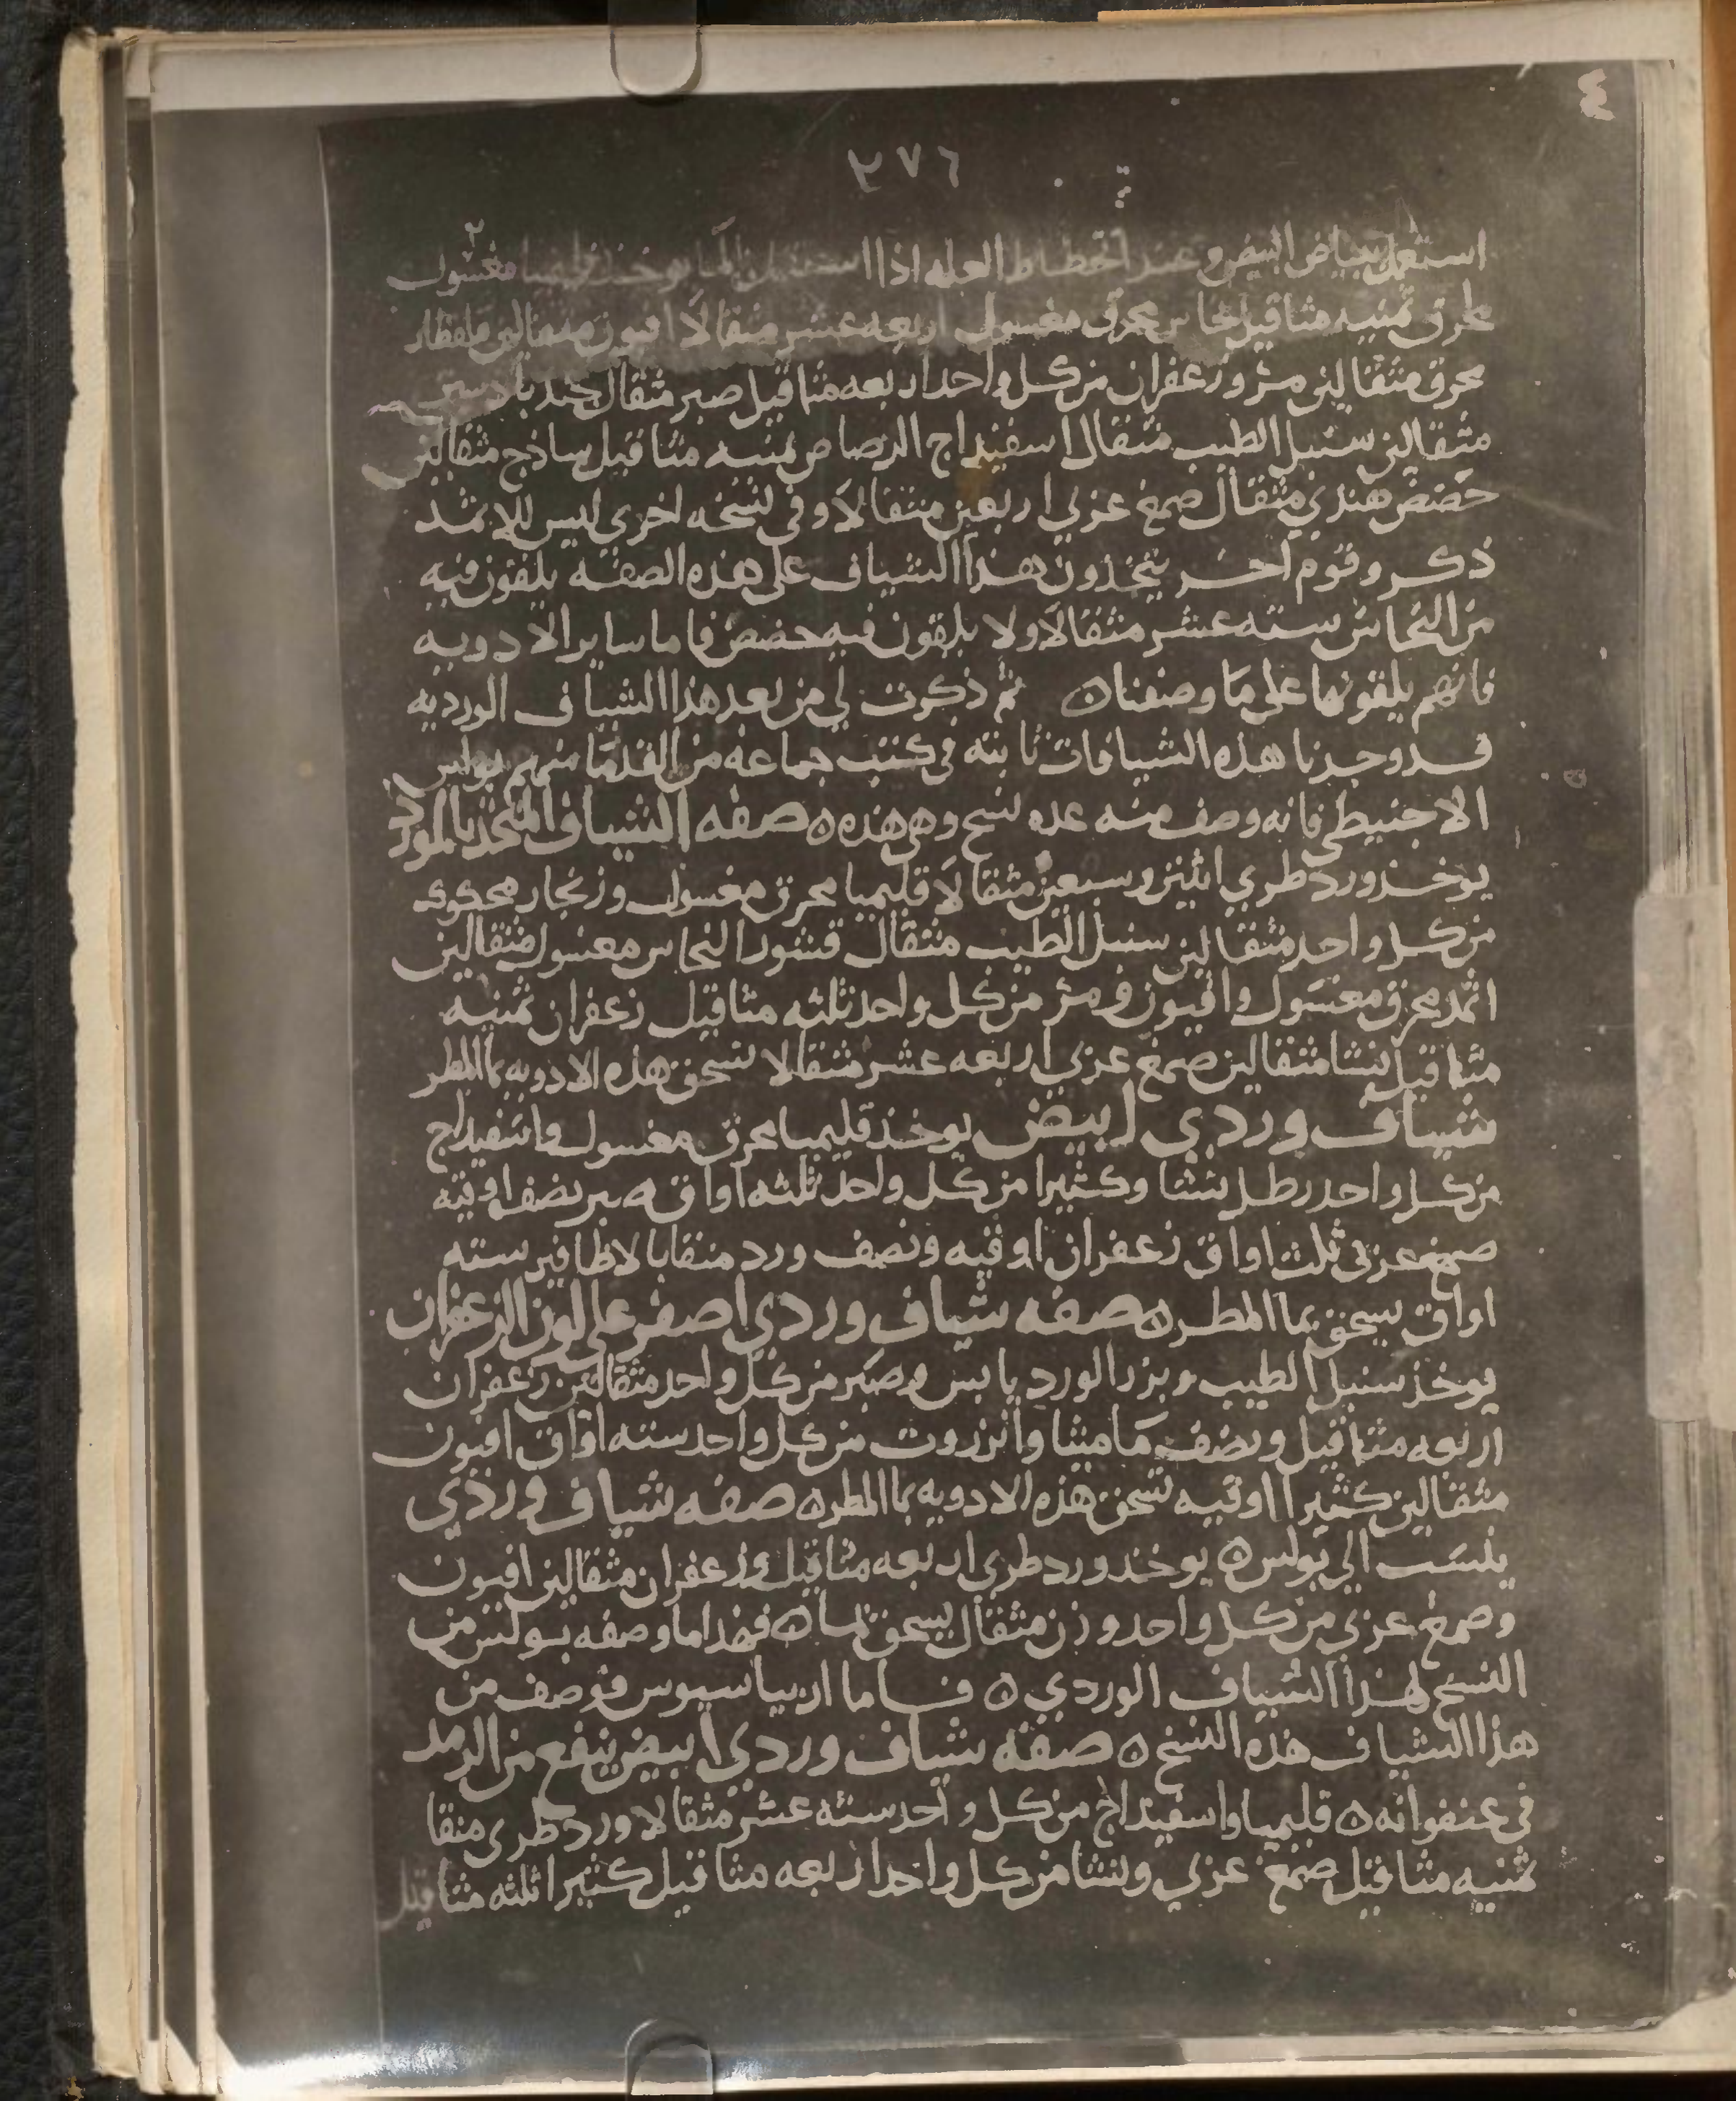 ٤
٣٧٦
استعمل ببياض البيض وعند انحطاط العله اذا استعمل بالما يوخذ قليميا مغسول
محرق ثمنيه مثاقيل نحاس محرق مغسول اربعه عشر مثقالا افيون مثقالين قلقطار
محرق مثقالين مر وزعفران من كل واحد اربعه مثاقيل صبر مثقال جندبادستر
مثقالين سنبل الطيب مثقال اسفيداج الرصاص ثمنيه مثاقيل ساذج مثقالين
حضض هندي مثقال صمغ عربي اربعين مثقالا وفي نسخه اخرى ليس للاثمد
ذكر وقوم اخر يتخذون هذا الشياف على هذه الصفه يلقون فيه
من النحاس سته عشر مثقالا ولا يلقون فيه حضض فاما ساير الادويه
فانهم يلقونها على ما وصفنا ه ثم ذكرت لي من بعد هذا الشياف الورديه
قد وجدنا هذه الشيافات ثابته في كتب جماعه من القدما منهم بولس
الاجنيطي فانه وصف منه عده نسخ وهي هذه ه صفه الشياف المتخذ بالورد
يوخذ ورد طري اثنين وسبعين مثقالا قليميا محرق مغسول وزنجار محكوك
من كل واحد مثقالين سنبل الطيب مثقال قشور النحاس مغسول مثقالين
اثمد محرق مغسول وافيون ومر من كل واحد ثلثه مثاقيل زعفران ثمنيه
مثاقيل نشا مثقالين صمغ عربي اربعه عشر مثقالا تسحق هذه الادويه بما المطر
شياف وردي ابيض يوخذ قليميا محرق مغسول واسفيداج
من كل واحد رطل نشا وكثيرا من كل واحد ثلثه اواق صبر نصف اوقيه
صمغ عربي ثلث اواق زعفران اوقيه ونصف ورد منقا بالاظافير سته
اواق يسحق بما المطر ه صفه شياف وردي اصفر على لون الزعفران
يوخذ سنبل الطيب وبزر الورد يابس وصبر من كل واحد مثقالين زعفران
اربعه مثاقيل ونصف ماميثا وانزروت من كل واحد سته اواق افيون
مثقالين كثيرا اوقيه تسحق هذه الادويه بما المطر ه صفه شياف وردي
ينسب الى بولس ه يوخذ ورد طري اربعه مثاقيل وزعفران مثقالين افيون
وصمغ عربي من كل واحد وزن مثقال يسحق بما ه فهذا ما وصفه بولس من
النسخ لهذا الشياف الوردي ه فاما اريباسيوس فوصف من
هذا الشياف هذه النسخ ه صفه شياف وردي ابيض ينفع من الرمد
في عنفوانه ه قليميا واسفيداج من كل واحد سته عشر مثقالا ورد طري منقا
ثمنيه مثاقيل صمغ عربي ونشا من كل واحد اربعه مثاقيل كثيرا ثلثه مثاقيل